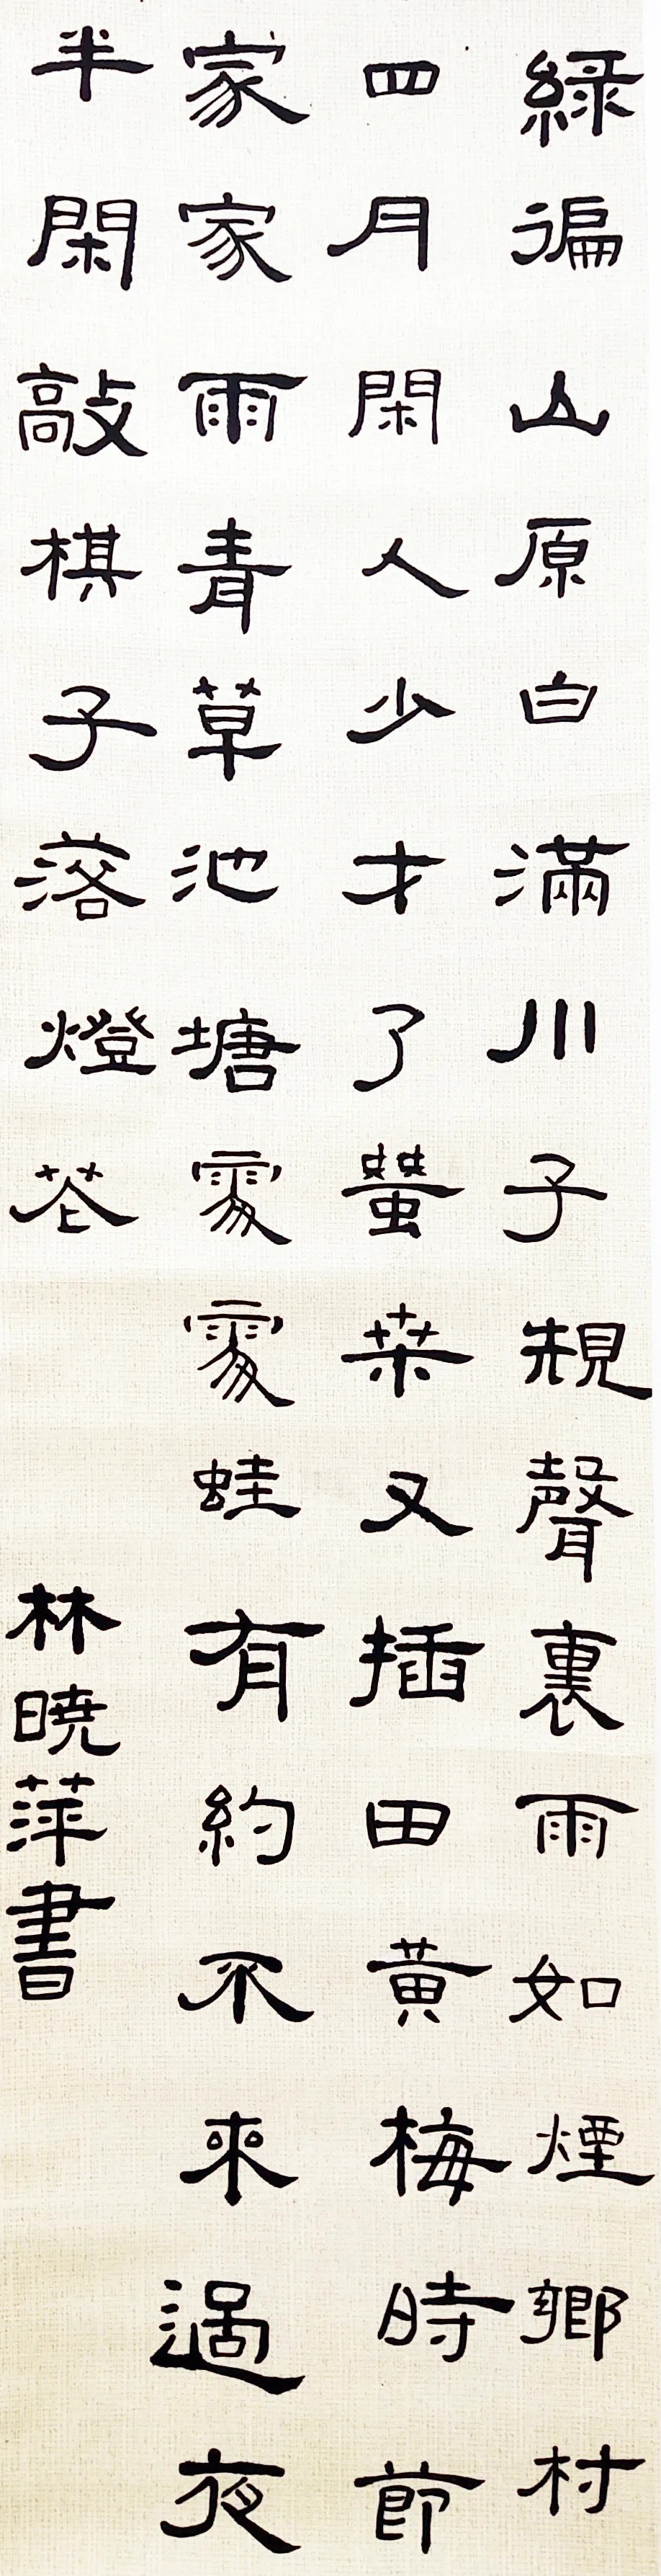 綠徧山原白滿川子規聲裏雨如煙鄉村
四月閑人少才了蠶桒又插田黃梅時節
家家雨青草池塘處處蛙有約不來過夜
半閑敲棋子落燈花
林曉萍書